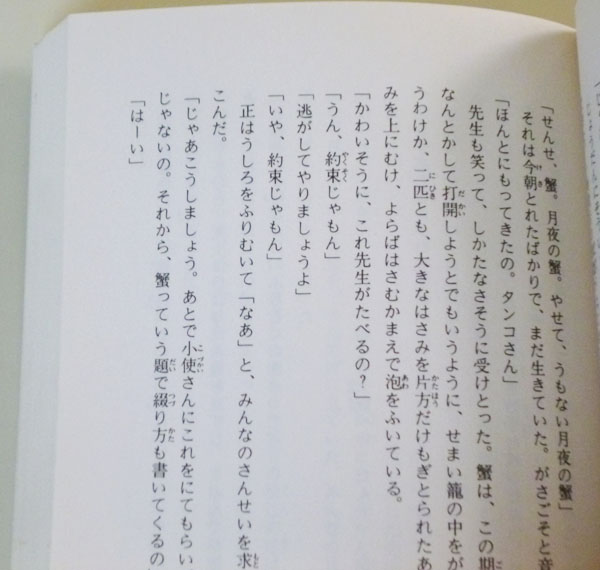 「せんせ、蟹。月夜の蟹。やせて、うもない月夜の蟹」
それは今朝とれたばかりで、まだ生きていた。がさごそと音
「ほんとにもってきたの。タンコさん」
先生も笑って、しかたなさそうに受けとった。蟹は、この期
なんとかして打開しようとでもいうように、せまい籠の中をが
うわけか、二匹とも、大きなはさみを片方だけもぎとられたあ
みを上にむけ、よらばはさむかまえで泡をふいている。
「かわいそうに、これ先生がたべるの？」
「うん、約束じゃもん」
「逃がしてやりましょうよ」
「いや、約束じゃもん」
正はうしろをふりむいて「なあ」と、みんなのさんせいを求
こんだ。
「じゃあこうしましょう。あとで小使さんにこれをにてもらい
じゃないの。それから、蟹っていう題で綴り方も書いてくるの
「はーい」